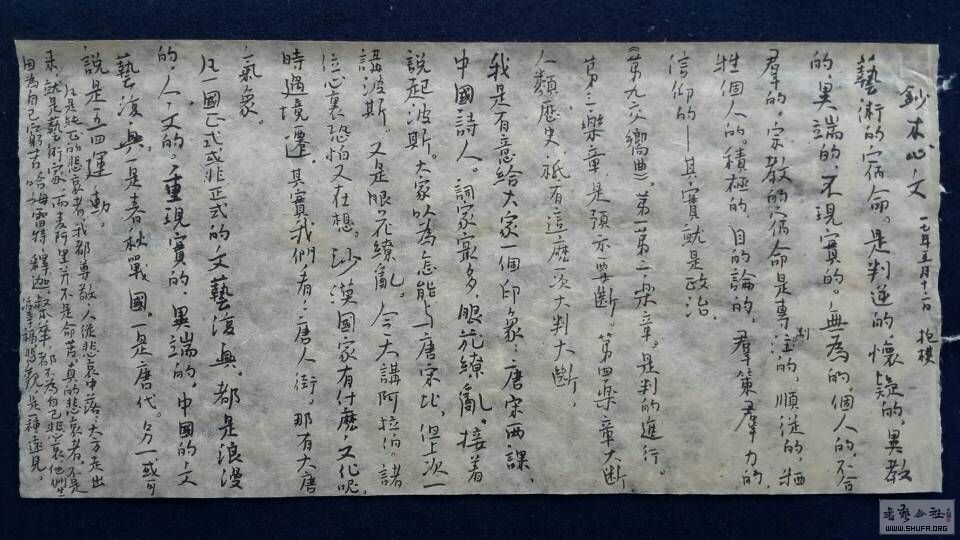 鈔木心文 一七年五月十二日 抱樸
藝術的宿命。是判逆的懷疑的,異教
的,異端的,不現實的。無為的,個人的,不合
羣的。宗教的宿命是專制的,順從的,犧
牲個人的。積極的,目的論的,羣策羣力的,
信仰的——其實就是政治。
《第九交嚮曲》,第一第二樂章。是判的進行。
第三樂章是預示要斷。第四樂章大斷,
人類歷史,祇有這麼一次大判大斷,
我是有意給大家一個印象:唐宋兩課,
中國詩人。詞家衆多,眼花繚亂。接着
說起波斯。大家以為怎能與唐宋比,但上次一
講波斯。又是眼花繚亂。今天講阿拉伯。諸
位心裏恐怕又在想。沙漠國家有什麼文化呢,
時過境遷,其實我們者,唐人街。那有大唐
氣象。
凡一國正式或非正式的文藝復興。都是浪漫
的,人文的。重現實的,異端的,中國的文
藝復興,一是春秋戰國,一是唐代。另一或可
說是五四運動。
凡是純正的悲哀者,我都尊敬,人從悲哀中落大方走出
來,就是藝術家,而麦阿里并不是命苦,真的悲哀者,不是
因為自己窮苦,哈姆雷特,釋迦,叔本華,都不為自己悲哀,他們生
活幸福,悲觀,是一種遠見。
書藝公社
WWW.SHUFA.ORG